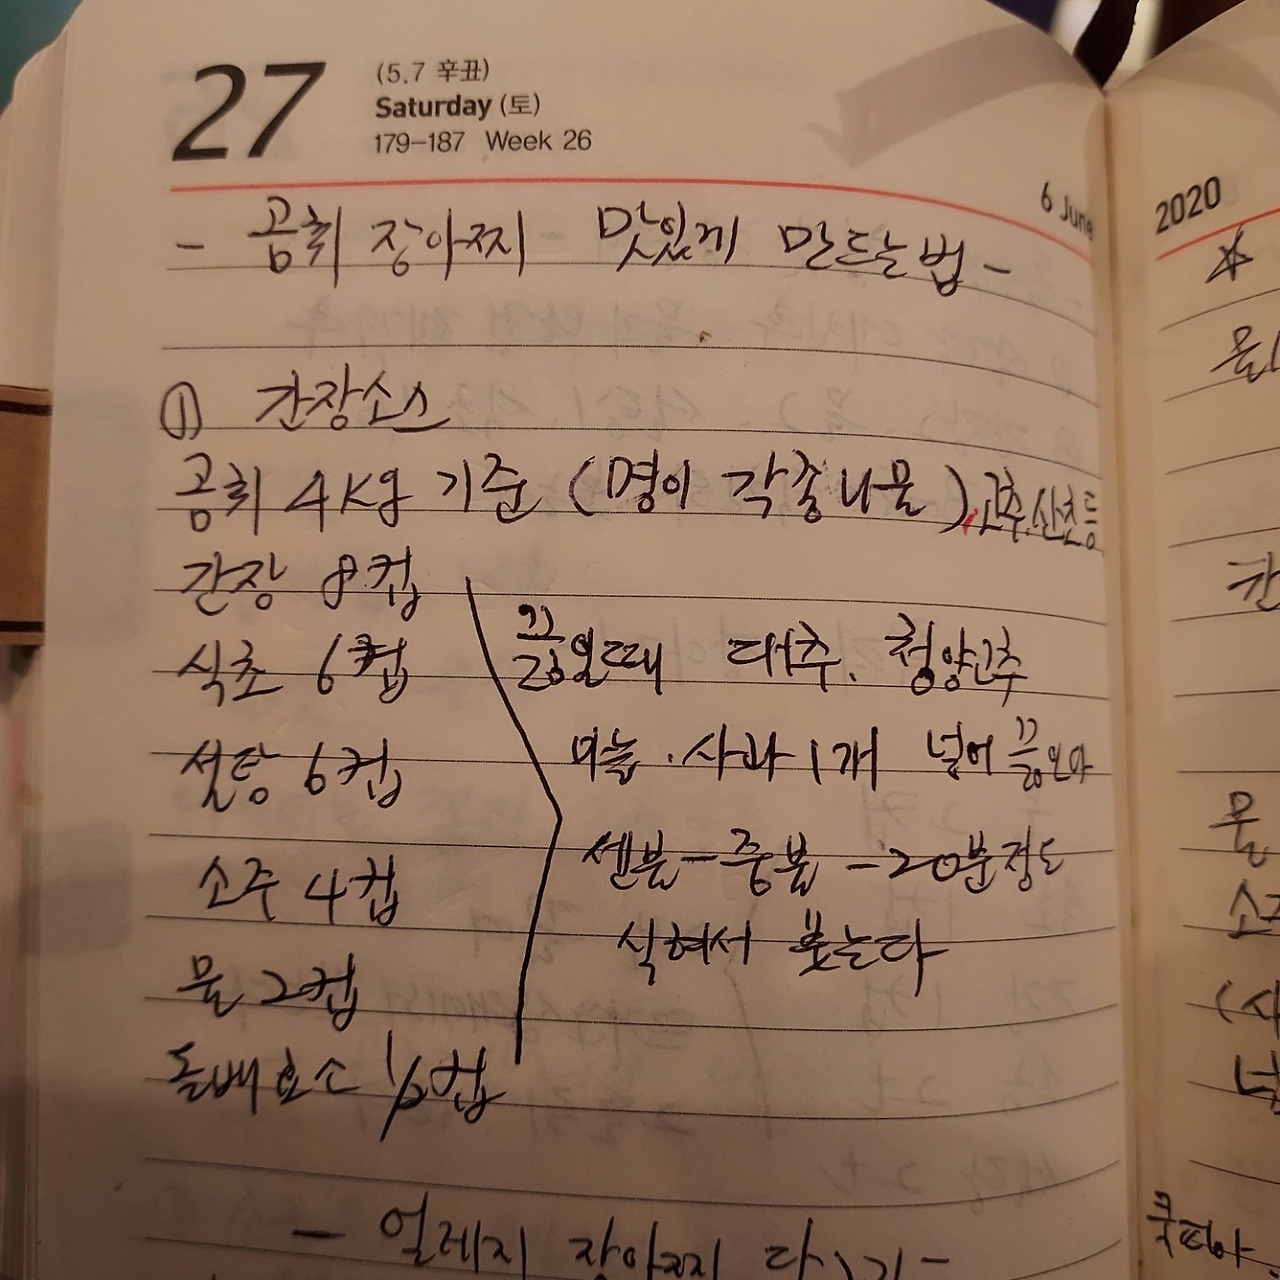 27
(5.7 辛丑)
Saturday (토)
179-187 Week 26
6 June
2020
- 곰취 장아찌 맛있게 만드는법 -
① 간장소스
곰취 4kg 기준 (명이 각종나물), 고추, 산초 등
간장 8컵
식초 6컵
설탕 6컵
소주 4컵
물 2컵
돌배효소 1/2컵
끓일때 대추. 청양고추
마늘. 사과 1개 넣어 끓으야
센불 - 중불 - 20분정도
식혀서 붓는다
- 얼레지 장아찌
물
소주